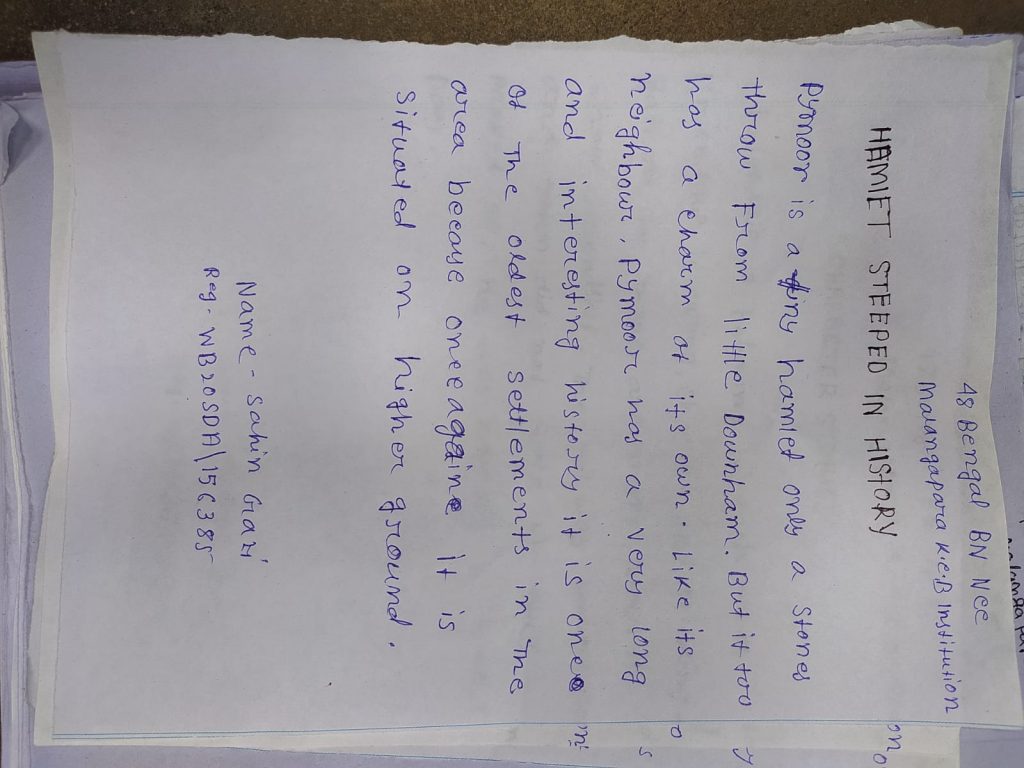 48 Bengal BN NCC
Malangapara K.C.B Institution
HAMLET STEEPED IN HISTORY
Pymoor is a tiny hamlet only a stones
throw From little Downham. But it too
has a charm of its own. Like its
neighbour, Pymoor has a very long
and interesting history it is one
of The oldest settlements in The
area because once againe It is
situated on higher ground.
Name - Sahin Gazi
Reg - WB20SDA/15C385